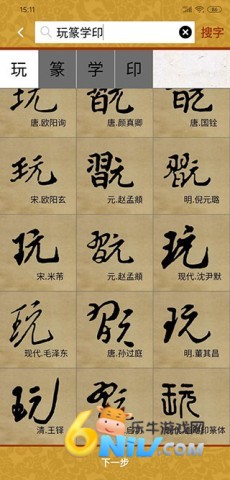 15:11
玩篆学印
搜字
玩 篆 学 印
唐.欧阳询 唐.颜真卿 唐.国铨
宋.欧阳玄 元.赵孟頫 明.倪元璐
宋.米芾 元.赵孟頫 现代.沈尹默
现代.毛泽东 唐.孙过庭 明.董其昌
清.王铎
乐牛游戏网
6NIU.COM
下一步